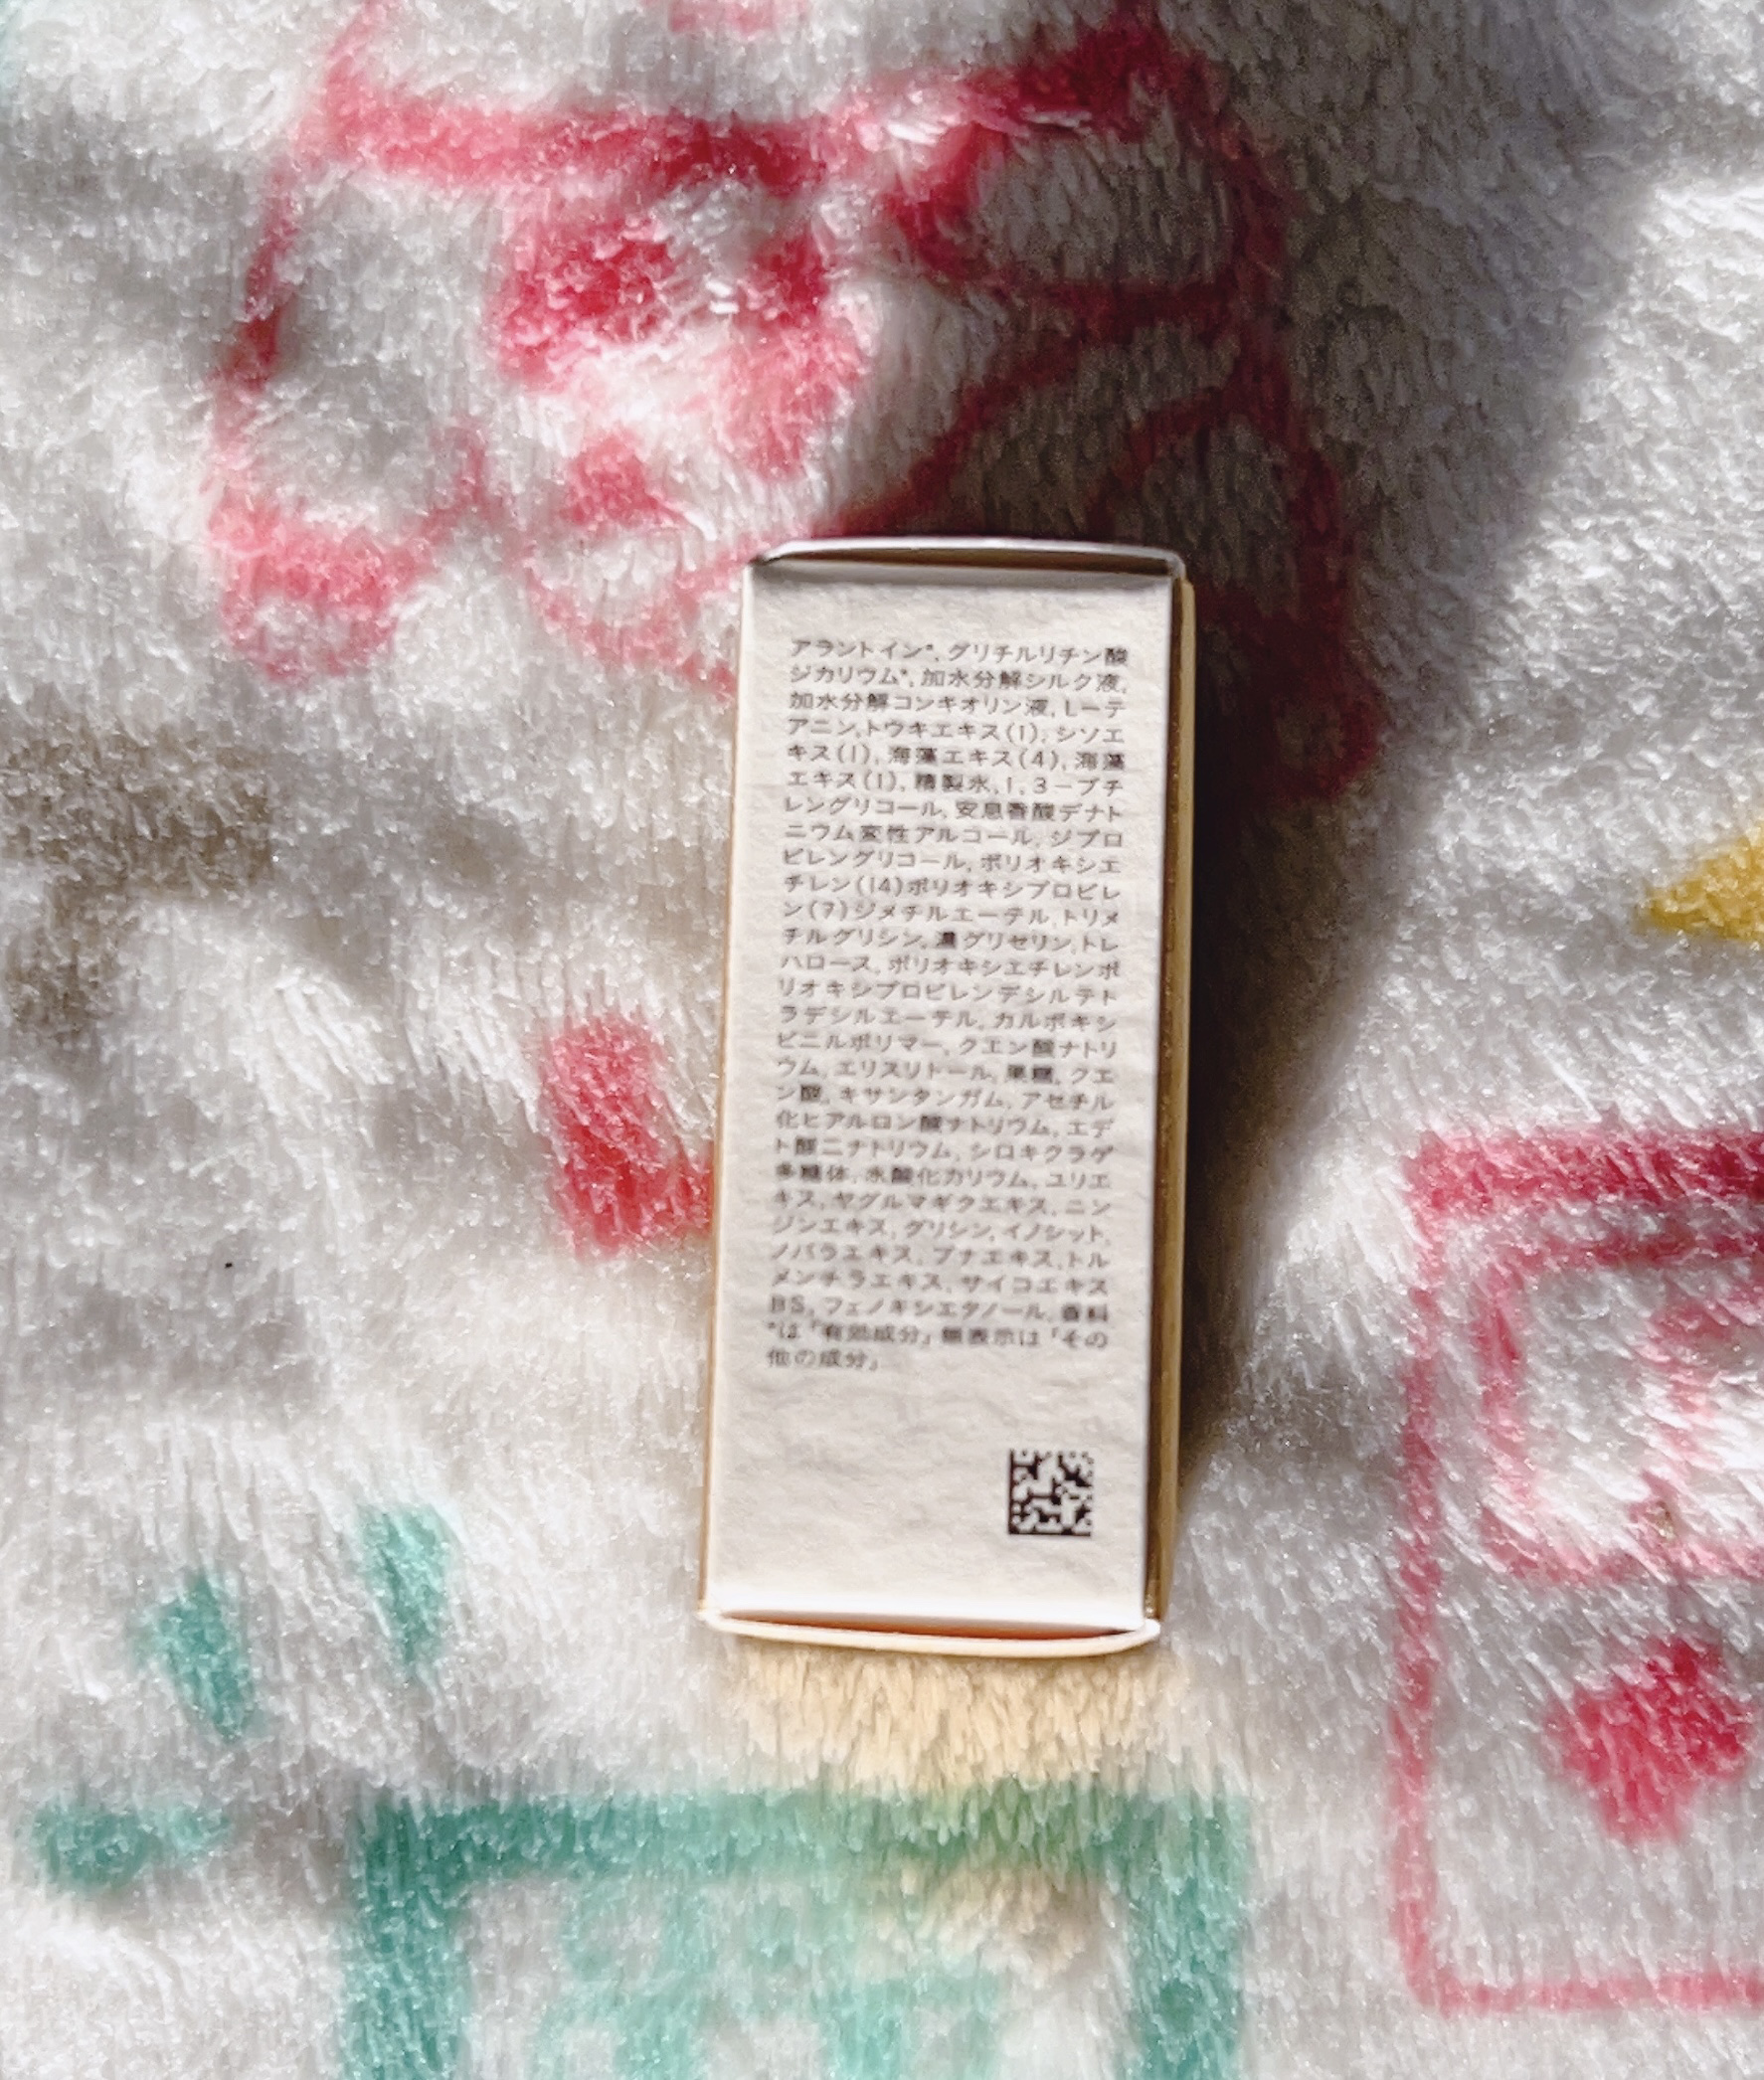 アラントイン*, グリチルリチン酸
ジカリウム*, 加水分解シルク液,
加水分解コンキオリン液, L-テ
アニン,トウキエキス(1), シソエ
キス(1), 海藻エキス(4), 海藻
エキス(1), 精製水,1,3-ブチ
レングリコール, 安息香酸デナト
ニウム変性アルコール, ジプロ
ピレングリコール, ポリオキシエ
チレン(14)ポリオキシプロピレ
ン(7)ジメチルエーテル,トリメ
チルグリシン, 濃グリセリン,トレ
ハロース, ポリオキシエチレンポ
リオキシプロピレンデシルテト
ラデシルエーテル, カルボキシ
ビニルポリマー, クエン酸ナトリ
ウム, エリスリトール, 果糖, クエ
ン酸, キサンタンガム, アセチル
化ヒアルロン酸ナトリウム, エデ
ト酸二ナトリウム, シロキクラゲ
多糖体, 水酸化カリウム, ユリエ
キス, ヤグルマギクエキス, ニン
ジンエキス, グリシン, イノシット,
ノバラエキス, ブナエキス,トル
メンチラエキス, サイコエキス
BS, フェノキシエタノール, 香料
*は「有効成分」無表示は「その
他の成分」